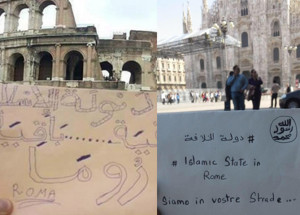 دولة
روما
ROMA
الله
رسول
محمد
# دولة
# Islamic State in
Rome
Siamo in vostre Strade ...